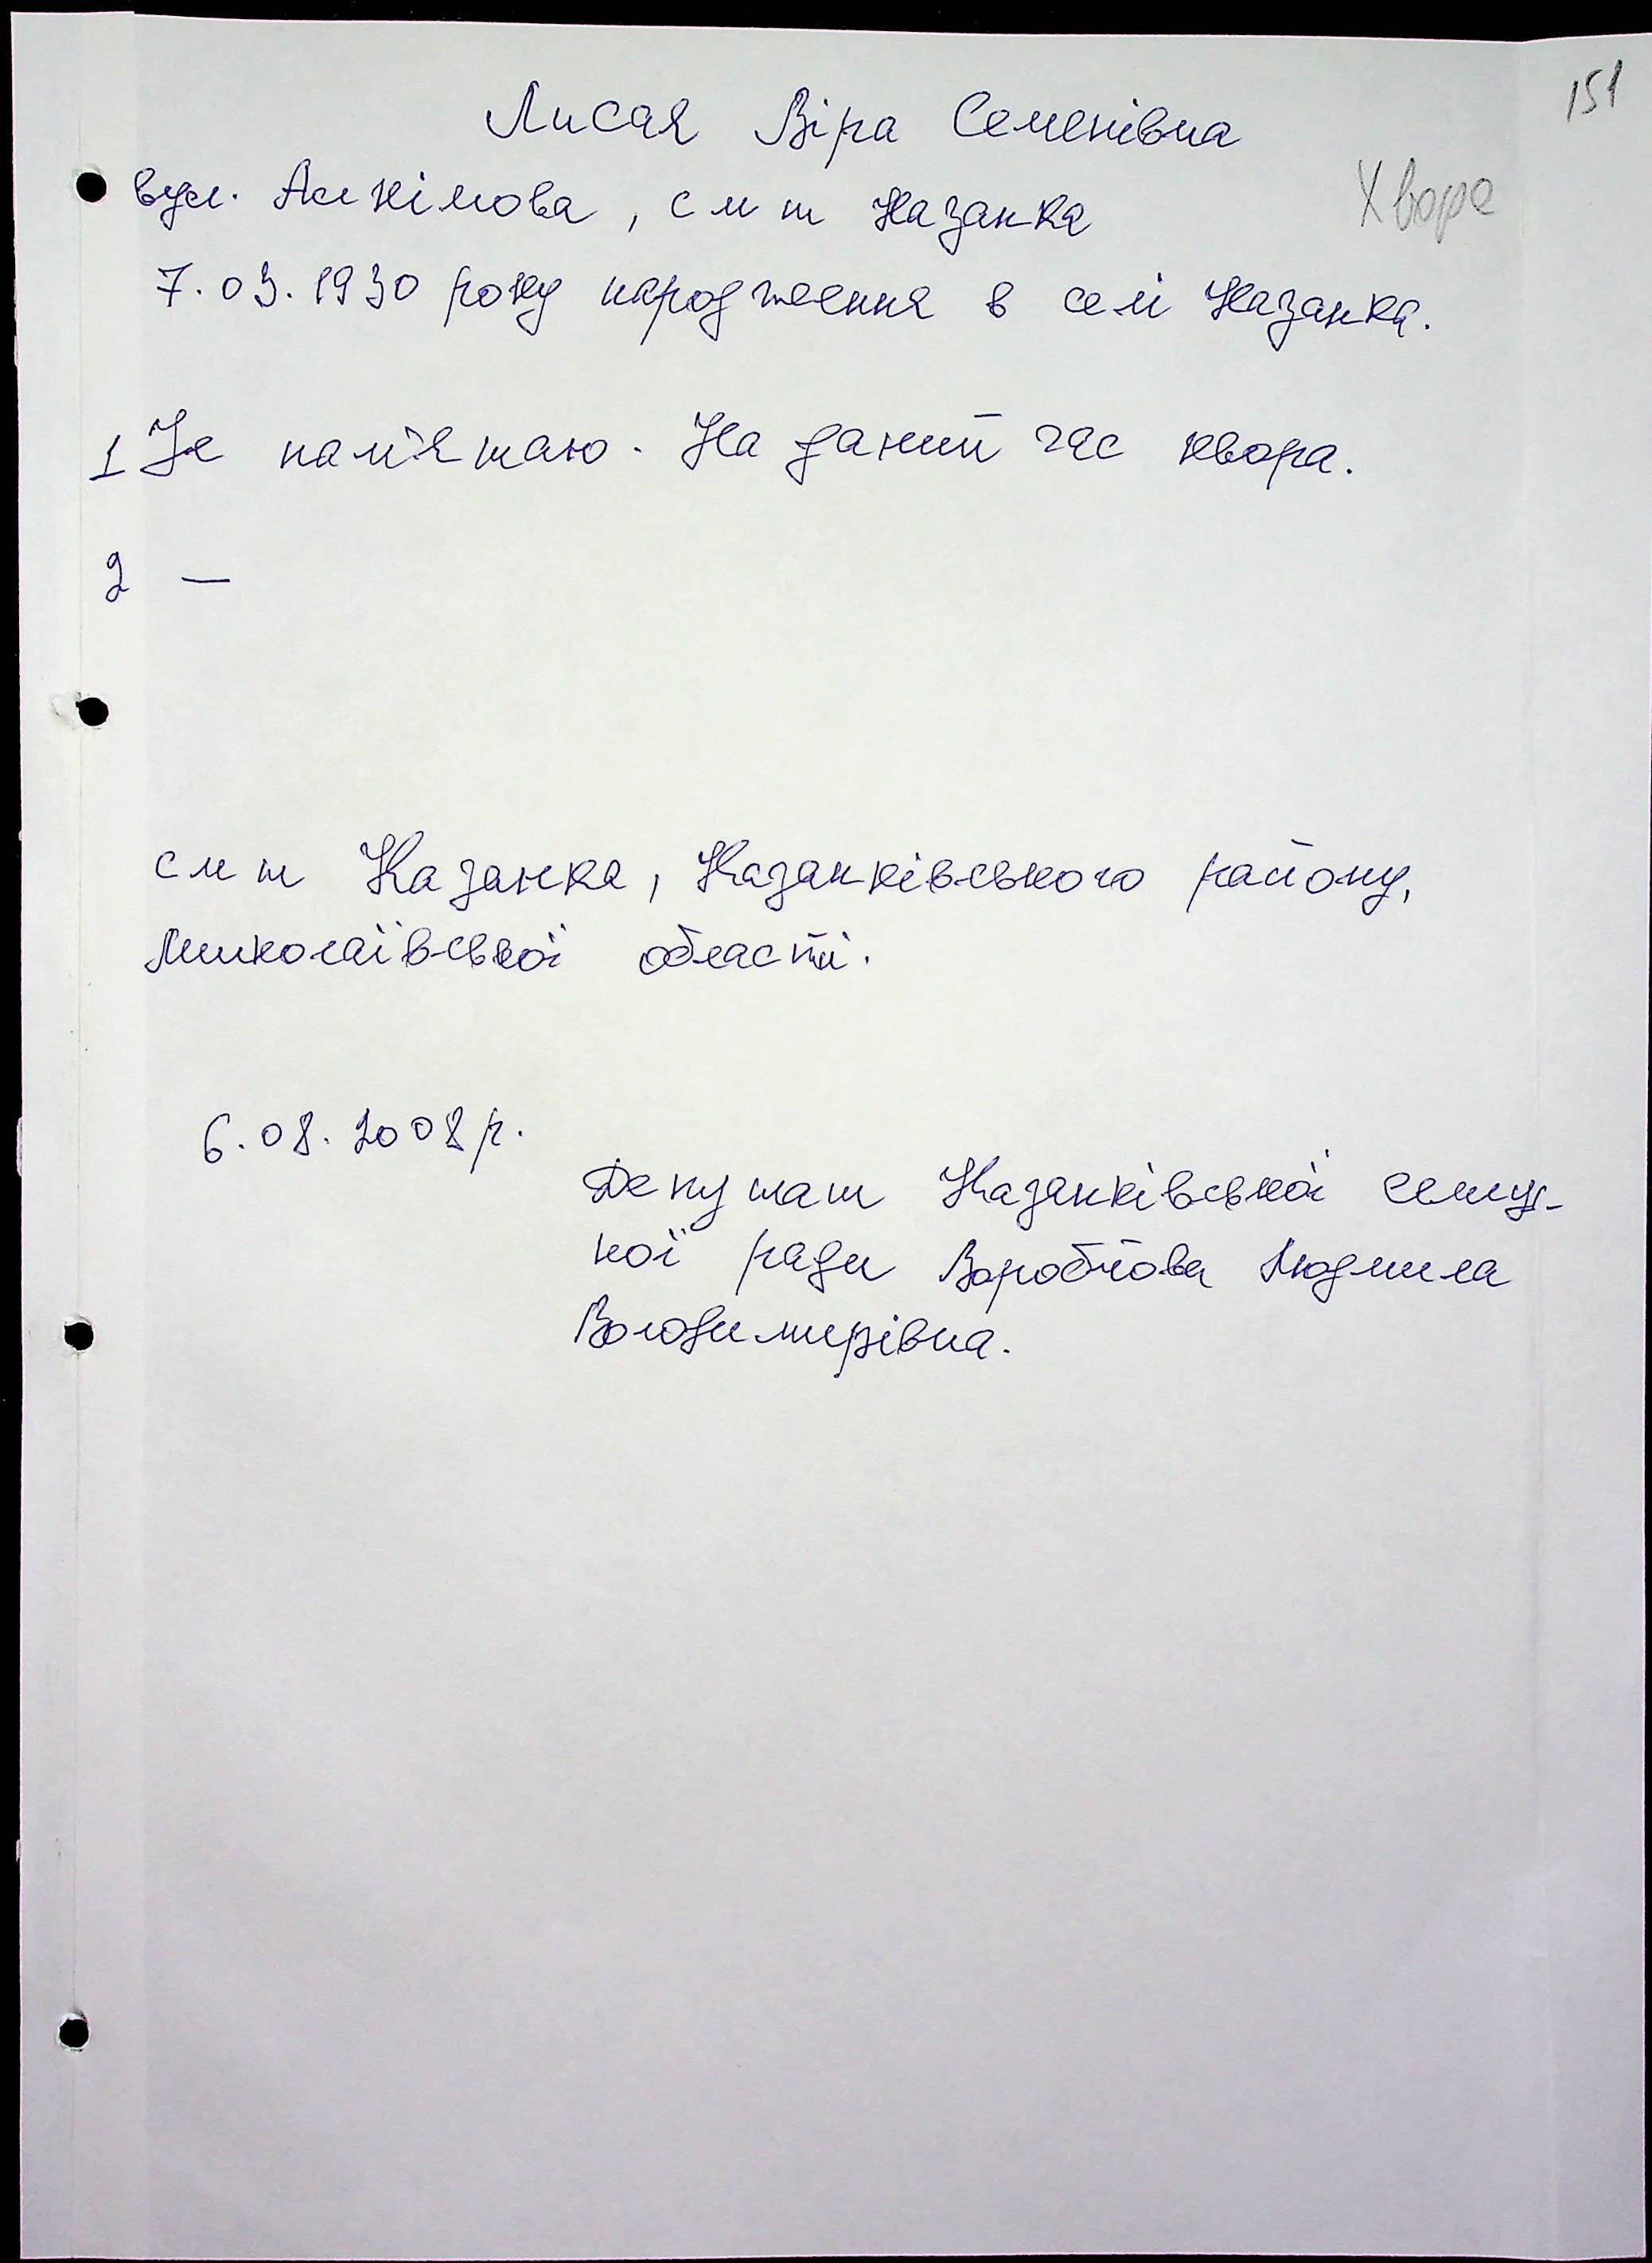 151
Лисая Віра Семенівна
Хвора
вул. , смт Казанка
7.03.1930 року народження в селі Казанка.
1 Не пам'ятаю. На даний час хвора.
2 —
смт Казанка, Казанківського району,
Миколаївської області.
6.08.2008 р.
Депутат Казанківської селищ-
ної ради Воробйова Людмила
Володимирівна.